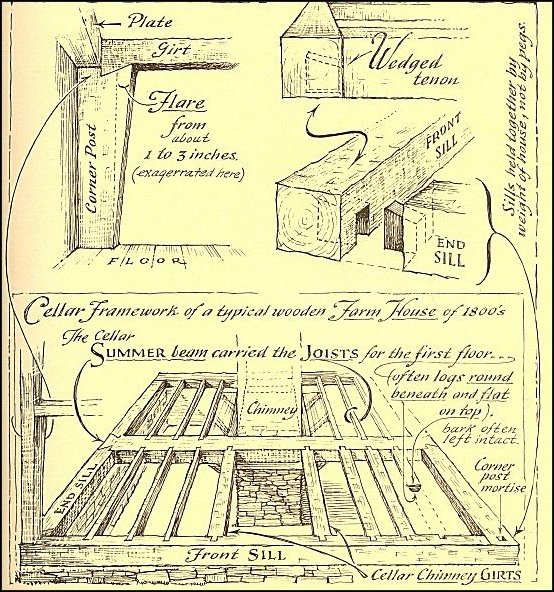 Plate
Girt
Flare
from
about
1 to 3 inches.
(exagerrated here)
Corner Post
FLOOR
Wedged
tenon
FRONT
SILL
END
SILL
Sills held together by
weight of house, not by pegs.
Cellar Framework of a typical wooden Farm House of 1800's
The Cellar
SUMMER beam carried the JOISTS for the first floor...
(often logs round
beneath and flat
on top).
bark often
left intact.
Chimney
END SILL
Corner
post
mortise
Front SILL
Cellar Chimney GIRTS